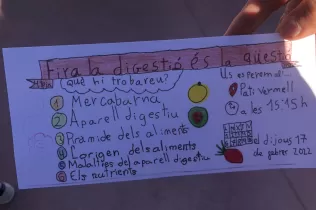 Fira la digestió és a questa
què hi trobareu?
1 Mercabarna
2 Aparell digestiu
3 Piràmide dels aliments
4 L'origen dels aliments
5 Malalties del aparell digestiu
6 Els nutrients
Us esperem a...
Pati vermell
a les 15:15h
el dijous 17
de febrer 2022